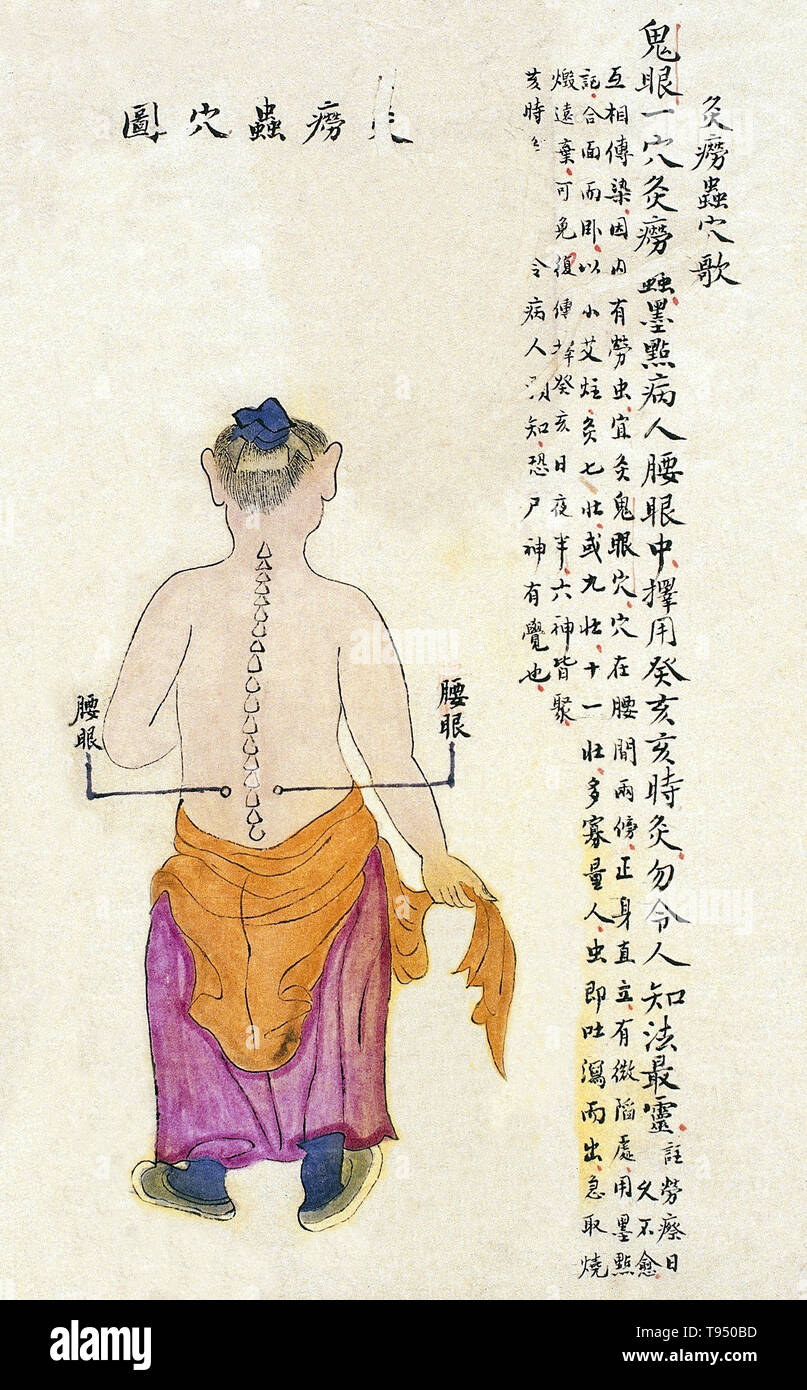 灸癆蟲穴歌
鬼眼一穴灸癆蟲墨點病人腰眼中擇用癸亥亥時灸勿令人知法最靈
註勞瘵日
久不愈
互相傳染因内有勞虫宜灸鬼眼穴穴在腰間兩傍正身直立有微陷處用墨點
記合面而卧以小艾炷灸七壯或九壯十一壯多寡量人虫即吐瀉而出急取燒
燬遠棄可免復傳擇癸亥日夜半六神皆聚
亥時令病人知恐尸神有覺也
癆蟲穴圖
腰眼
腰眼
alamy
alamy
Image ID: T950BD
www.alamy.com